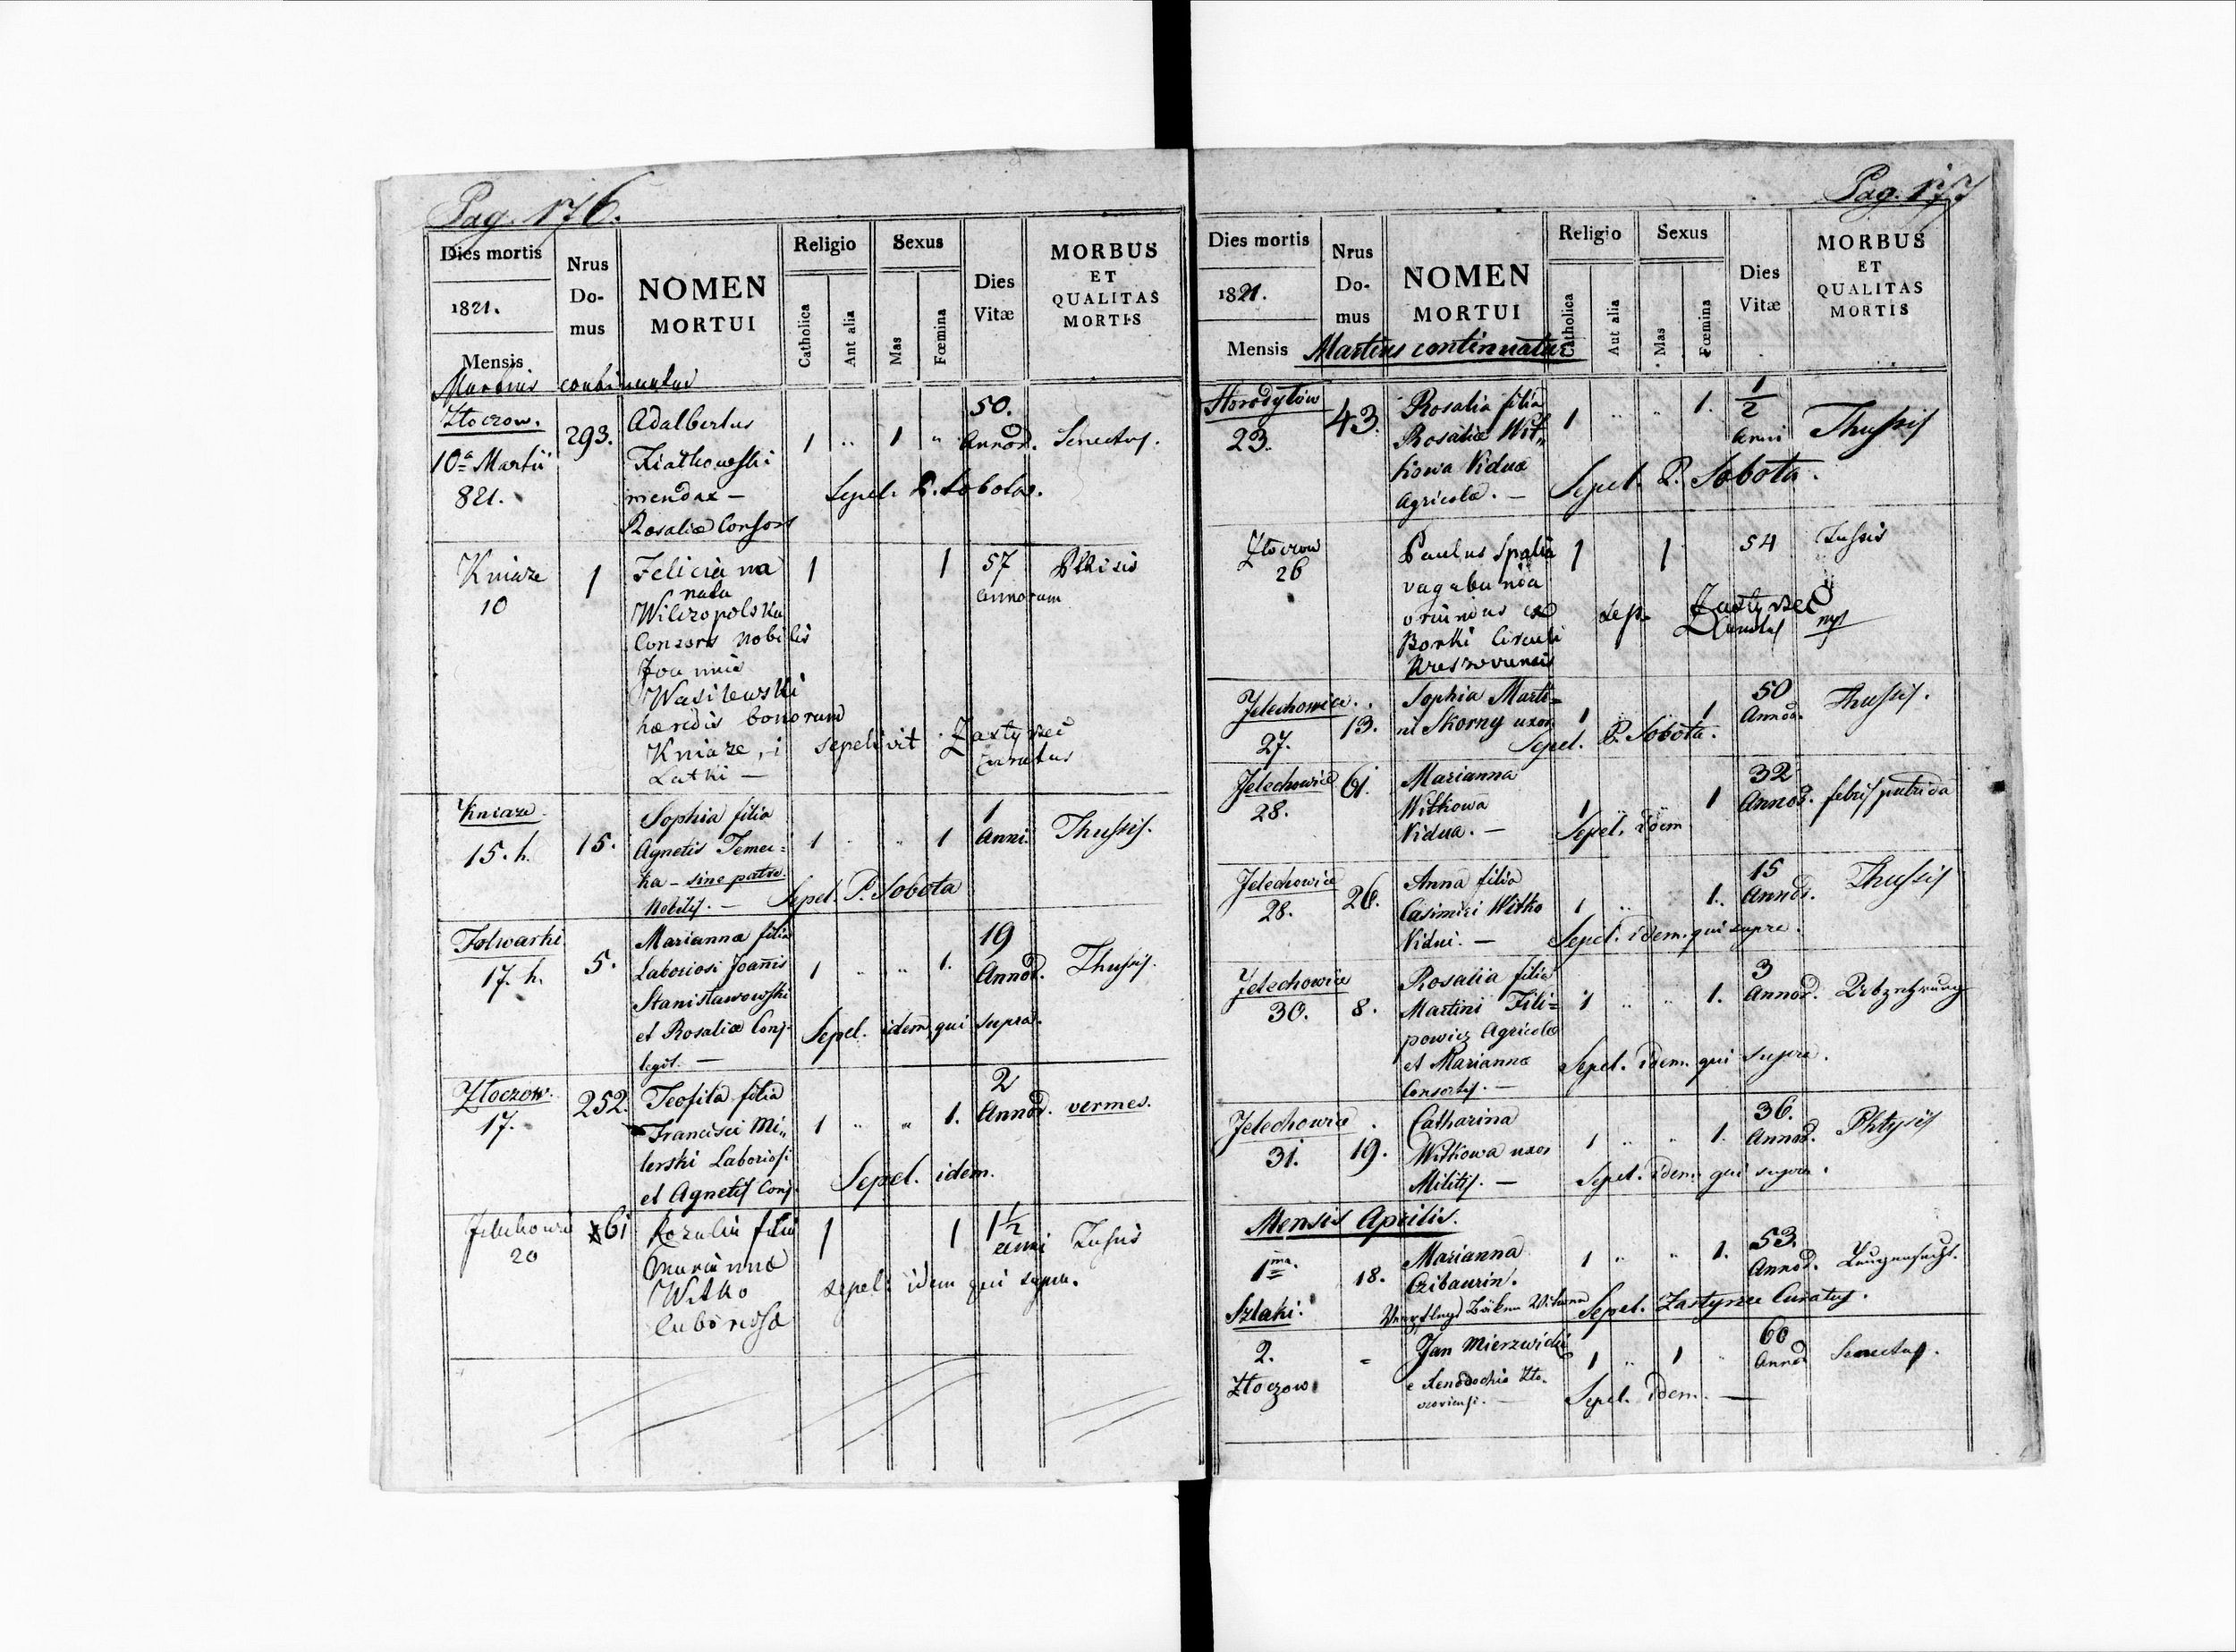 Pag. 176.
Dies mortis
1821.
Mensis
Nrus
Do-
mus
NOMEN
MORTUI
Religio
Catholica
Aut alia
Sexus
Mas
Fœmina
Dies
Vitæ
MORBUS
ET
QUALITAS
MORTIS
Martius continuatur
Złoczow.
10a Martii
821.
293.
Adalbertus
Kiałkowski
mendax —
Rosaliæ Consors
1 " 1 "
50.
Annor.
Senectus.
Sepel. P. Sobota.
Kniaze
10
1
Felicia na
nata
Wilczopolska
Consors Nobilis
Joannis
Wasilewski
hæredis bonorum
Kniaze, i
Latki —
1 1
57
annorum
Pthisis
sepelivit Zastyrzec
curatus
Kniaze
15. h.
15.
Sophia filia
Agnetis Temec=
ka — sine patre.
Nobilis. —
1 " " 1
1
Anni.
Thussis.
Sepel. P. Sobota
Folwarki
17. h.
5.
Marianna filia
Laboriosi Joañis
Stanisławowski
et Rosaliæ Conj.
legit. —
1 " " 1.
19
Annor.
Thussis.
Sepel. idem qui supra.
Złoczow.
17.
252.
Teofila filia
Francisci Mi„
lerski Laboriosi
et Agnetis Conj.
1 " " 1.
2
Annor.
vermes.
Sepel. idem.
Jelechowice
20
61
Rozalia filia
Marianna
Witko
laboriosa
1 1
1½
anni
Tussis
sepel: idem qui supra.
Pag. 177
Dies mortis
1821.
Mensis
Nrus
Do-
mus
NOMEN
MORTUI
Religio
Catholica
Aut alia
Sexus
Mas
Fœmina
Dies
Vitæ
MORBUS
ET
QUALITAS
MORTIS
Martius continuatur
Horodyłów
23.
43.
Rosalia filia
Rosaliæ Wit„
kowa Viduæ
Agricolæ. —
1 " " 1.
1/2
Anni
Thussis
Sepel. P. Sobota.
Złoczow
26
Paulus Spalia
vagabunda
oriundus ex
Borki Circuli
Rzeszovensis
1 1
54
Tussis
sep. Zastyrzec
Jelechowice.
27.
13.
Sophia Marti=
ni Skorny uxor
1 1
50
Annor.
Thussis.
Sepel. P. Sobota.
Jelechowice
28.
61.
Marianna
Witkowa
Vidua. —
1 " " 1
32
Annor.
febris putrida
Sepel. idem
Jelechowice
28.
26.
Anna filia
Casimiri Witko
Vidui. —
1 " 1.
15
Annor.
Thussis
Sepel. idem qui supra.
Jelechowice
30.
8.
Rosalia filia
Martini Fili=
powicz Agricolæ
et Marianna
Consortis. —
1 " " 1.
3
Annor.
Abzehrung
Sepel. idem qui supra.
Jelechowice
31.
19.
Catharina
Witkowa uxor
Militis. —
1 " " 1.
36.
Annor.
Phtysis
Sepel. idem qui supra.
Mensis Aprilis.
1ma.
Szlaki.
18.
Marianna
Czibaurin.
1 " " 1.
53.
Annor.
Lungensucht.
Sepel. Zastyrzec Curatus.
2.
Złoczow
Jan Mierzwicki
e Xenodochio Zło-
czoviensi. —
1 " 1 "
60
Annor
Senectus.
Sepel. idem. —